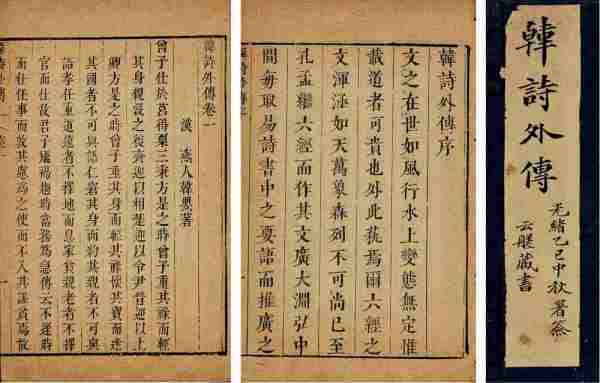 韓詩外傳
光緒乙巳中秋署簽
云藏書
韓詩外傳序
文之在世如風行水上變態無定惟
載道者可貴也外此焉爾六經之
文渾涵如天萬象森列不可尚已至
孔孟繼六經而作其文廣大淵弘中
間每取易詩書中之要語而推廣之
韓詩外傳卷一
漢 燕人韓嬰著
曾子仕於莒得粟三秉方是之時曾子重其祿而輕
其身親沒之後齊迎以相楚迎以令尹晉迎以上
卿方是之時曾子重其身而輕其祿懷其寶而迷
其國者不可與語仁窘其身而約其親者不可與
語孝任重道遠者不擇地而息家貧親老者不擇
官而仕故君子橋褐趨時當務為急傳云不逢時
而仕任事而敦其慮為之使而不入其謀貧焉故